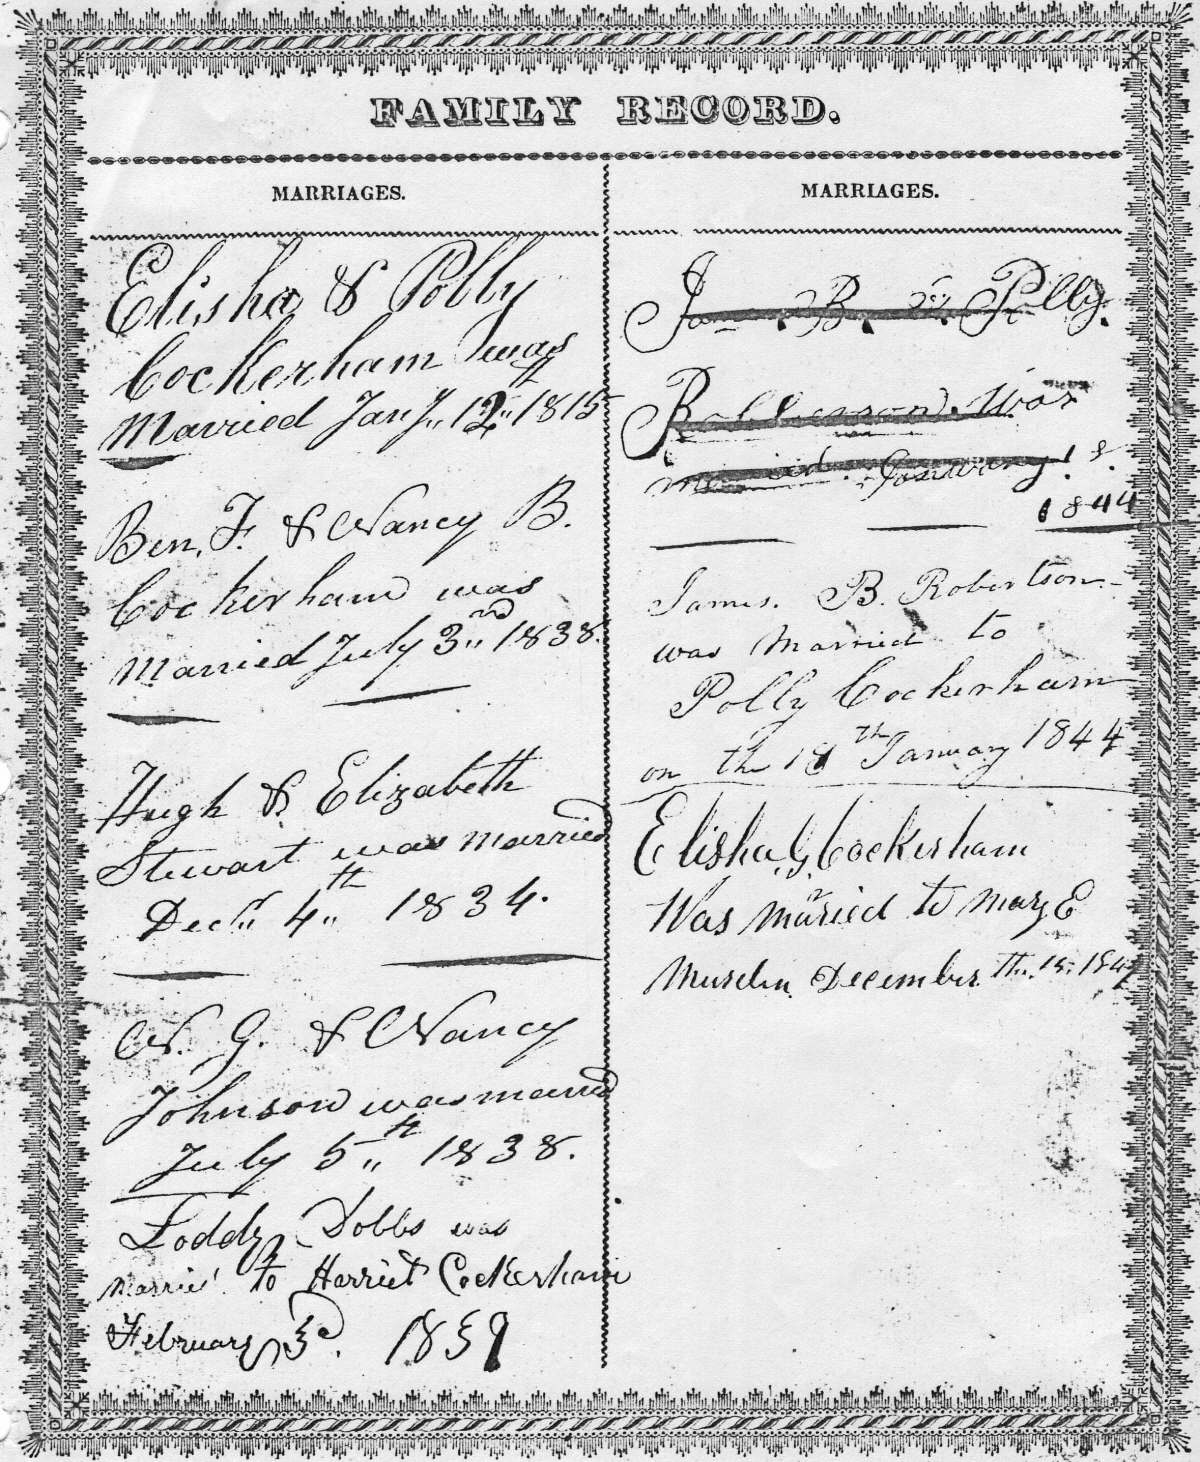 FAMILY RECORD.
MARRIAGES.
Elisha & Polly
Cockerham was
Married Jany,, 12,, 1815
Ben, F. & Nancy B.
Cockerham was
Married July 3,,rd 1838.
Hugh & Elizabeth
Stewart was married
Decr,, 4,,th 1834.
N. G. & Nancy
Johnson was married
July 5,,th 1838.
Loddy Dobbs was
Married to Harriet Cockerham
February 3d. 1859
MARRIAGES.
B. & Polly.
was
January
1844
James. B. Robertson
was Married to
Polly Cockerham
on the 18th January 1844
Elisha G Cockerham
Was Maried to Mary E
December th. 15.